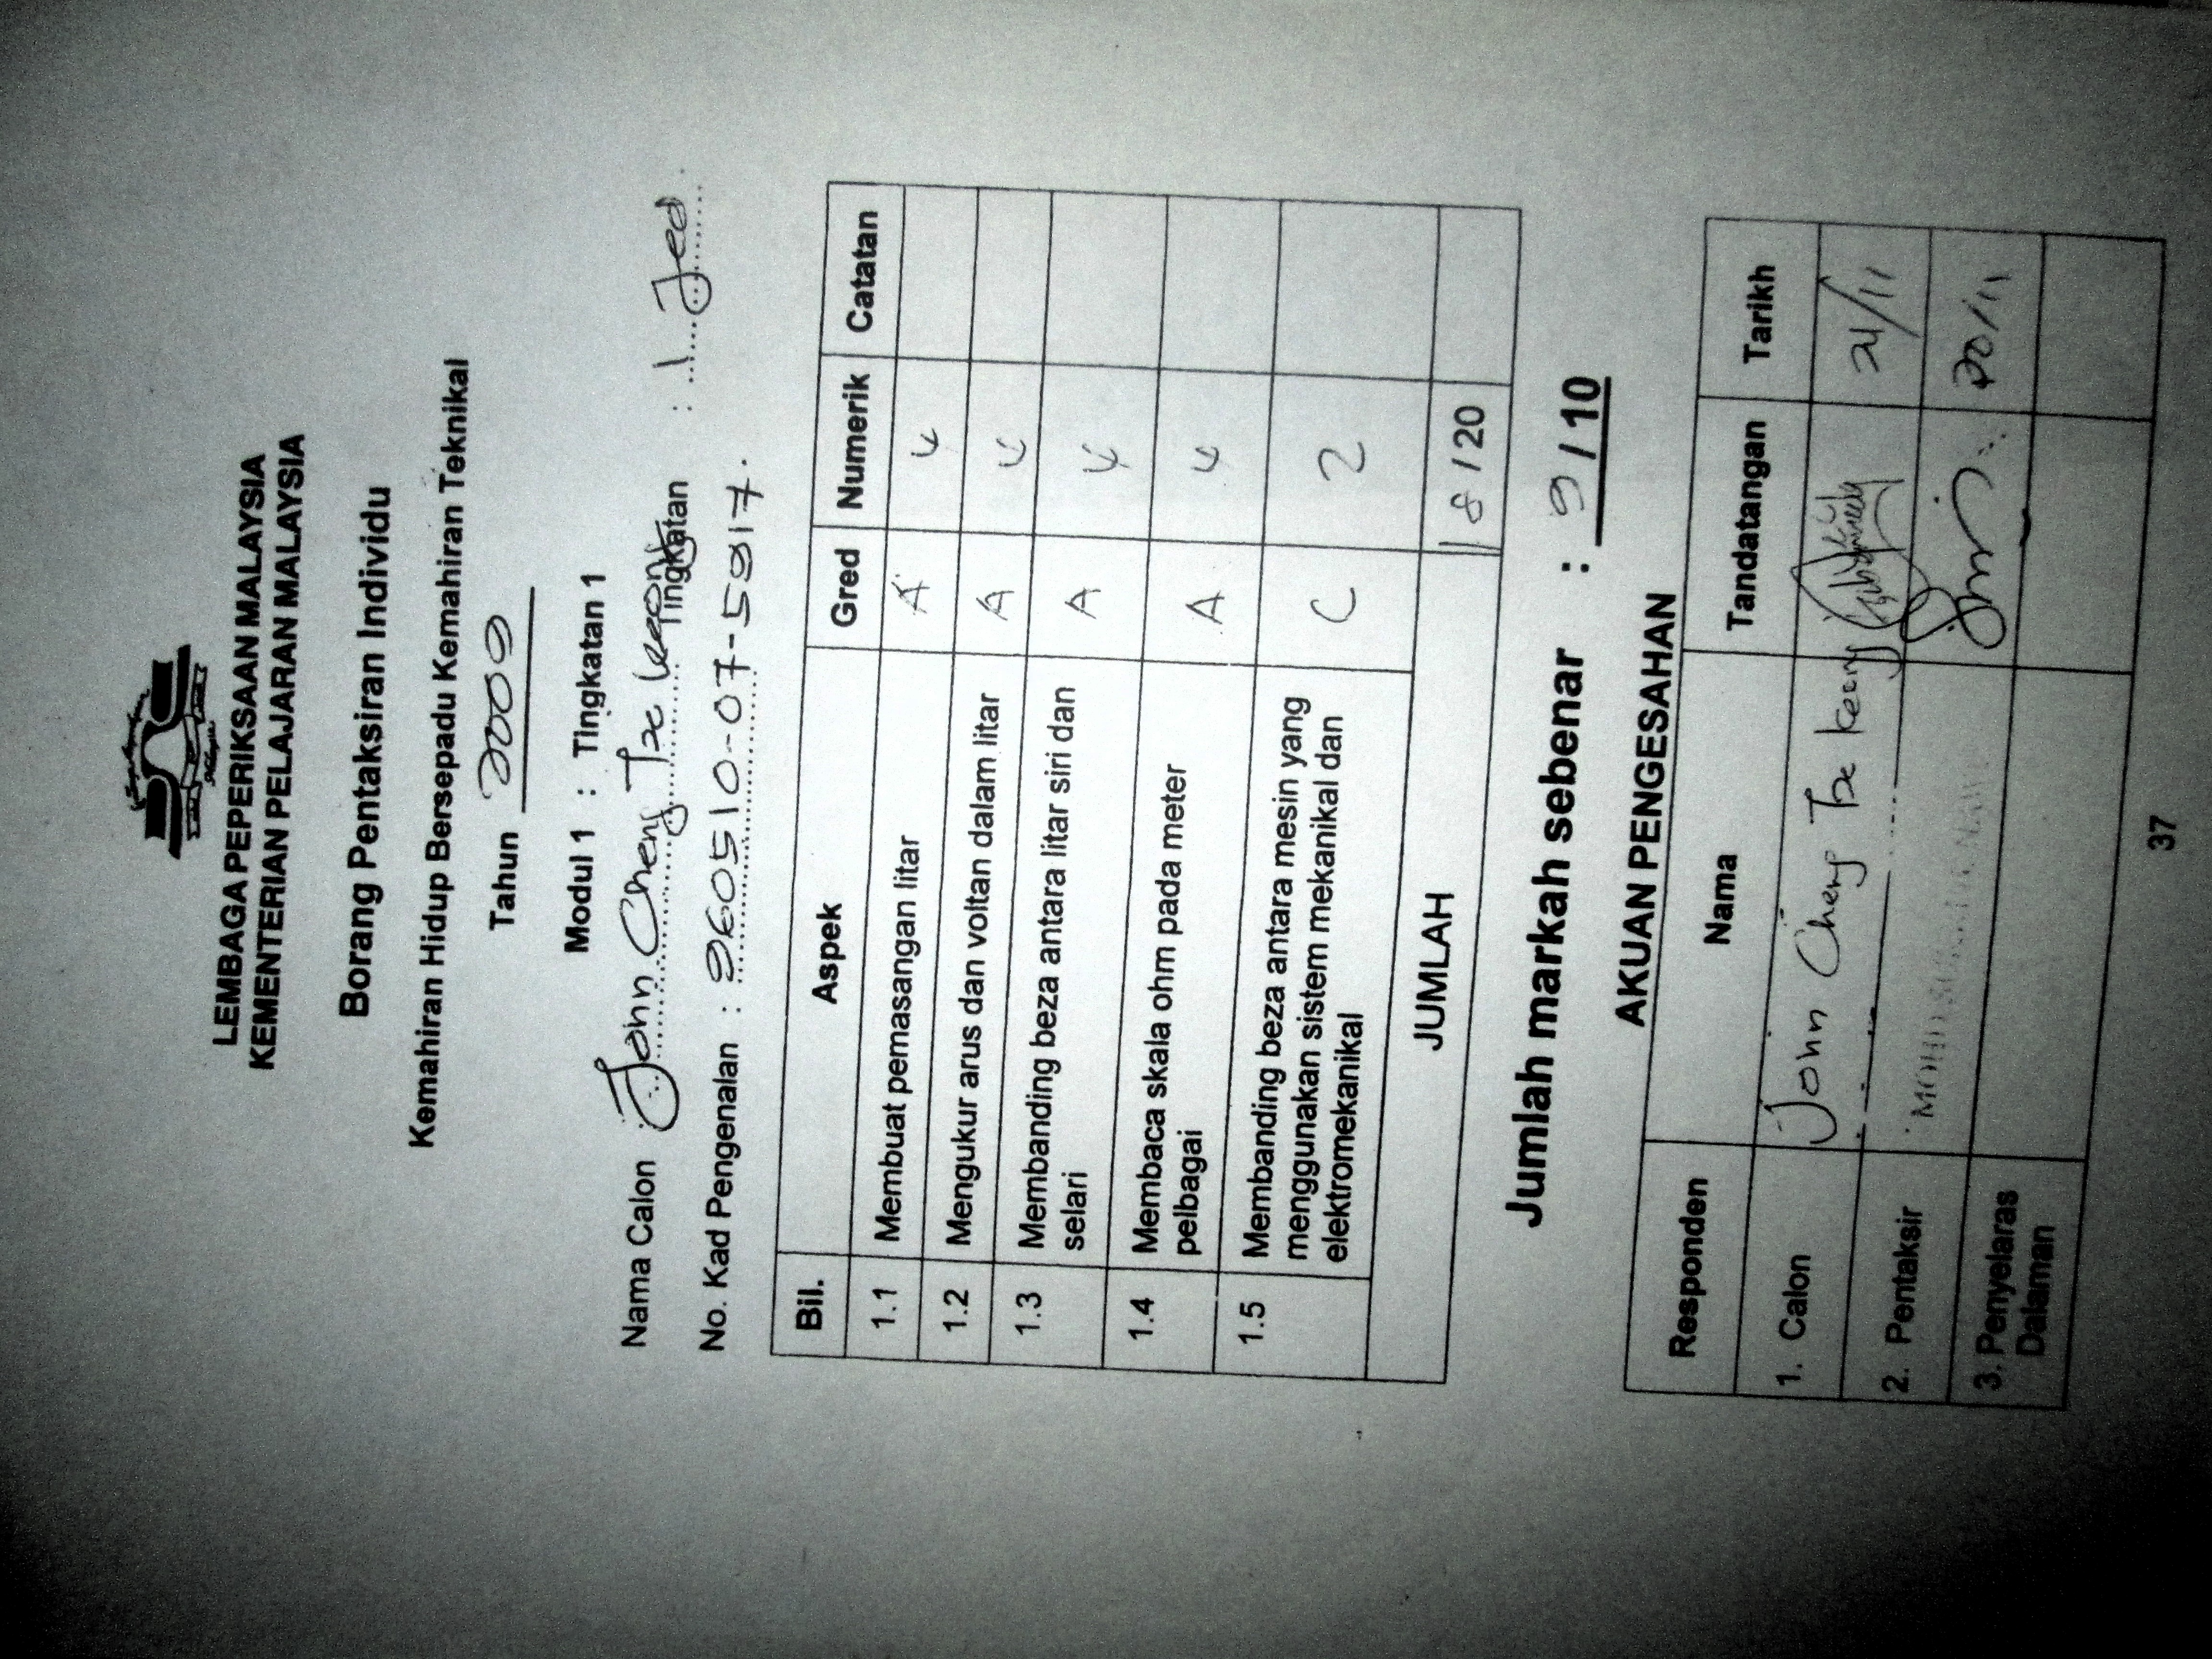 LEMBAGA PEPERIKSAAN MALAYSIA
KEMENTERIAN PELAJARAN MALAYSIA
Borang Pentaksiran Individu
Kemahiran Hidup Bersepadu Kemahiran Teknikal
Tahun 2009
Modul 1 : Tingkatan 1
Nama Calon : John Cheng Tze Keong Tingkatan : 1 Jed
No. Kad Pengenalan : 960510-07-5917.
Bil. Aspek Gred Numerik Catatan
1.1 Membuat pemasangan litar A 4
1.2 Mengukur arus dan voltan dalam litar A 4
1.3 Membanding beza antara litar siri dan
selari A 4
1.4 Membaca skala ohm pada meter
pelbagai A 4
1.5 Membanding beza antara mesin yang
menggunakan sistem mekanikal dan
elektromekanikal C 2
JUMLAH 18 / 20
Jumlah markah sebenar : 9 / 10
AKUAN PENGESAHAN
Responden Nama Tandatangan Tarikh
1. Calon John Cheng Tze Keong 21/11
2. Pentaksir MOHD 20/11
3. Penyelaras
Dalaman
37